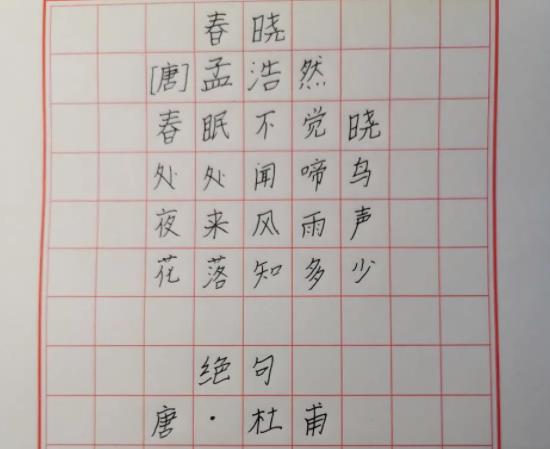 春晓
[唐]孟浩然
春眠不觉晓
处处闻啼鸟
夜来风雨声
花落知多少
绝句
唐·杜甫